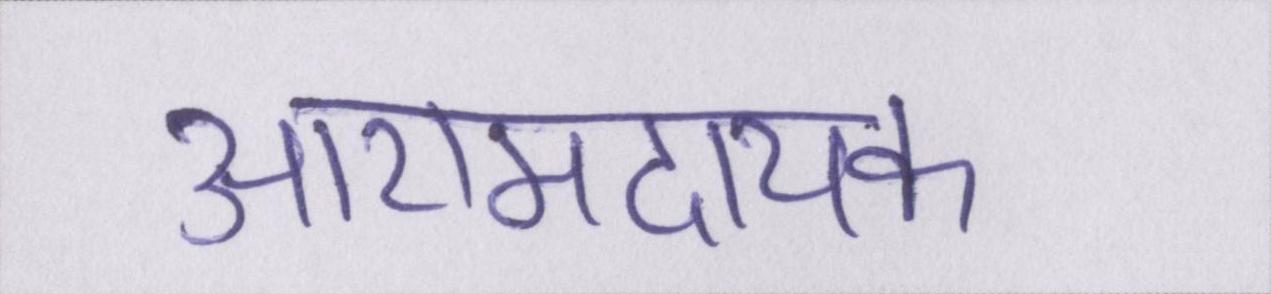 आरामदायक